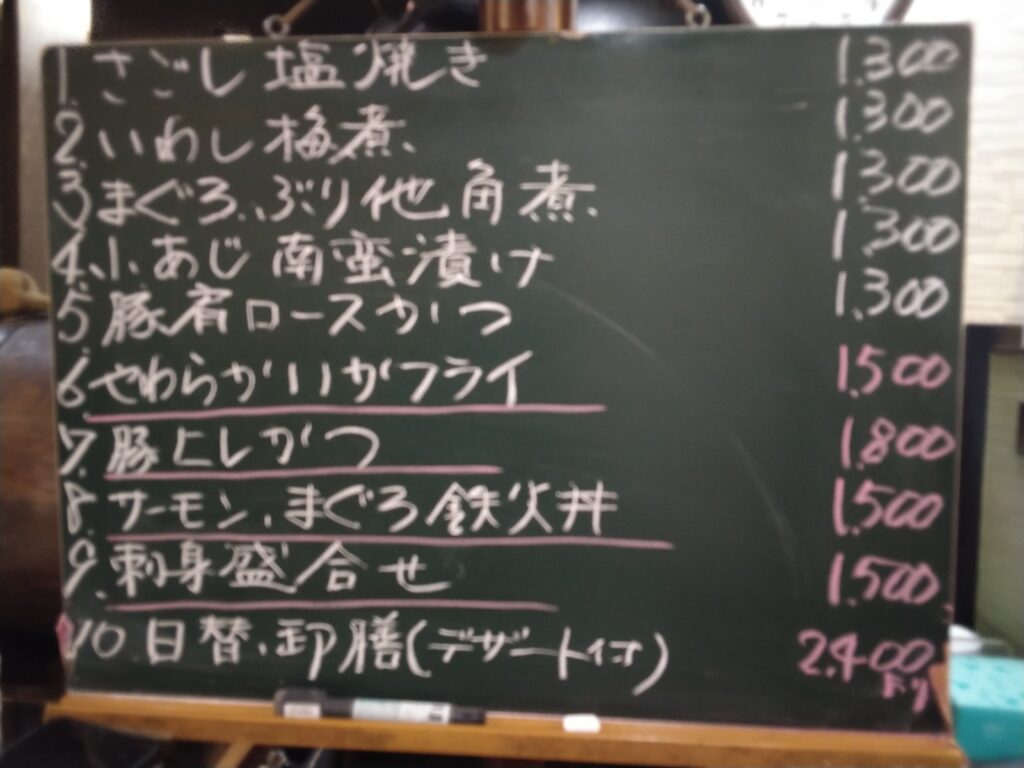 1. さごし 塩焼き 1.300
2. いわし 梅煮 1.300
3. まぐろ、ぶり他 角煮 1.300
4. 小あじ 南蛮漬け 1.300
5 豚肩ロースかつ 1.300
6 やわらかいかフライ 1.500
7. 豚ヒレかつ 1.800
8. サーモン、まぐろ鉄火丼 1.500
9. 刺身盛合せ 1.500
10 日替、卸膳(デザート付) 2.400
より